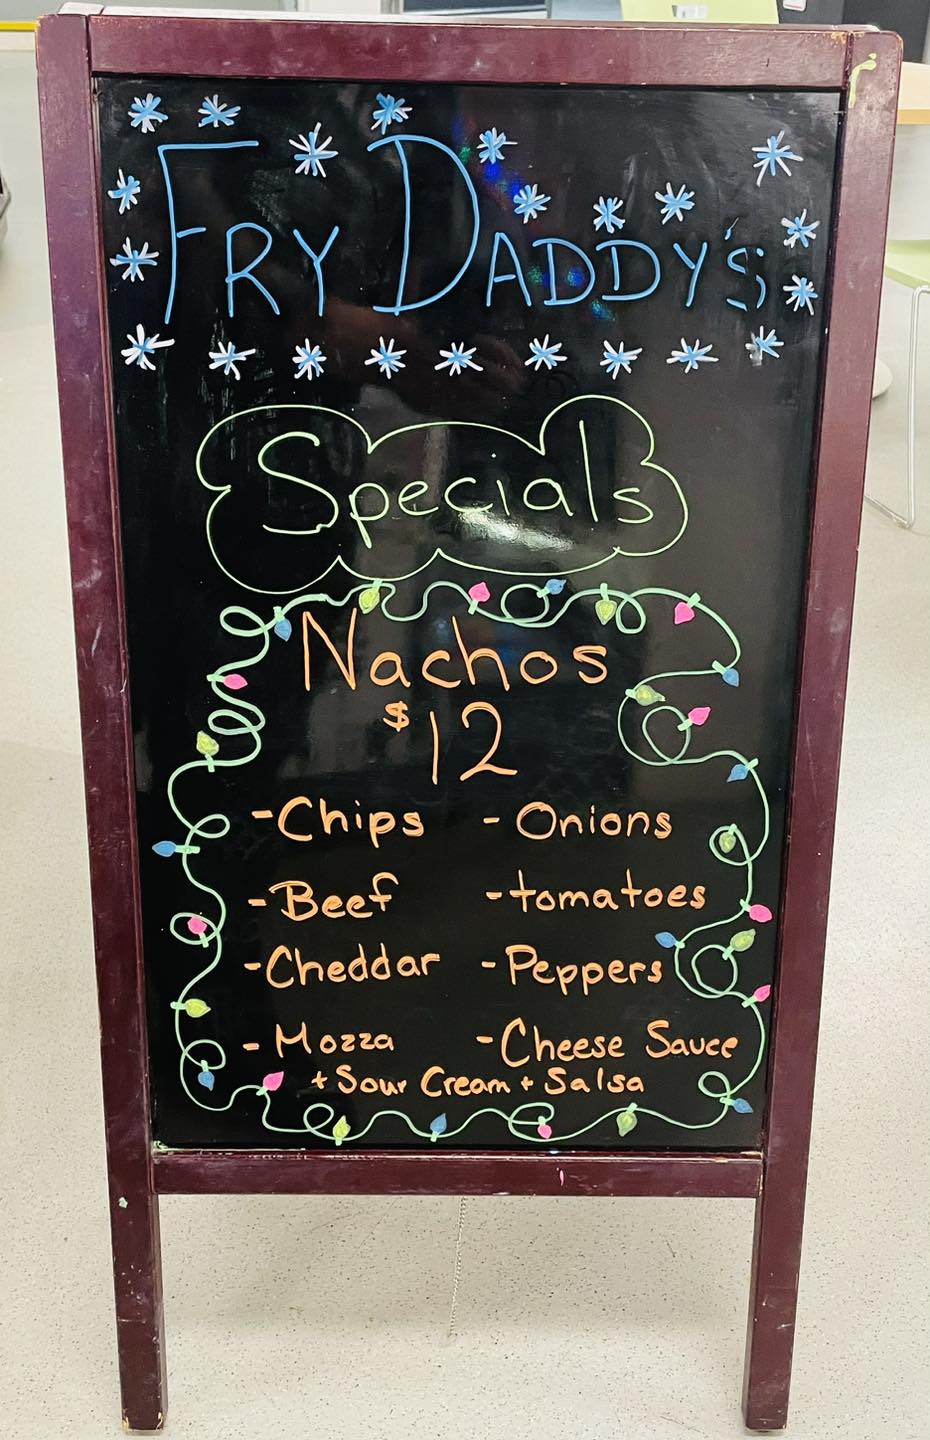 FRY DADDY'S
Specials
Nachos
$12
-Chips -Onions
-Beef -tomatoes
-Cheddar -Peppers
-Mozza -Cheese Sauce
+ Sour Cream + Salsa